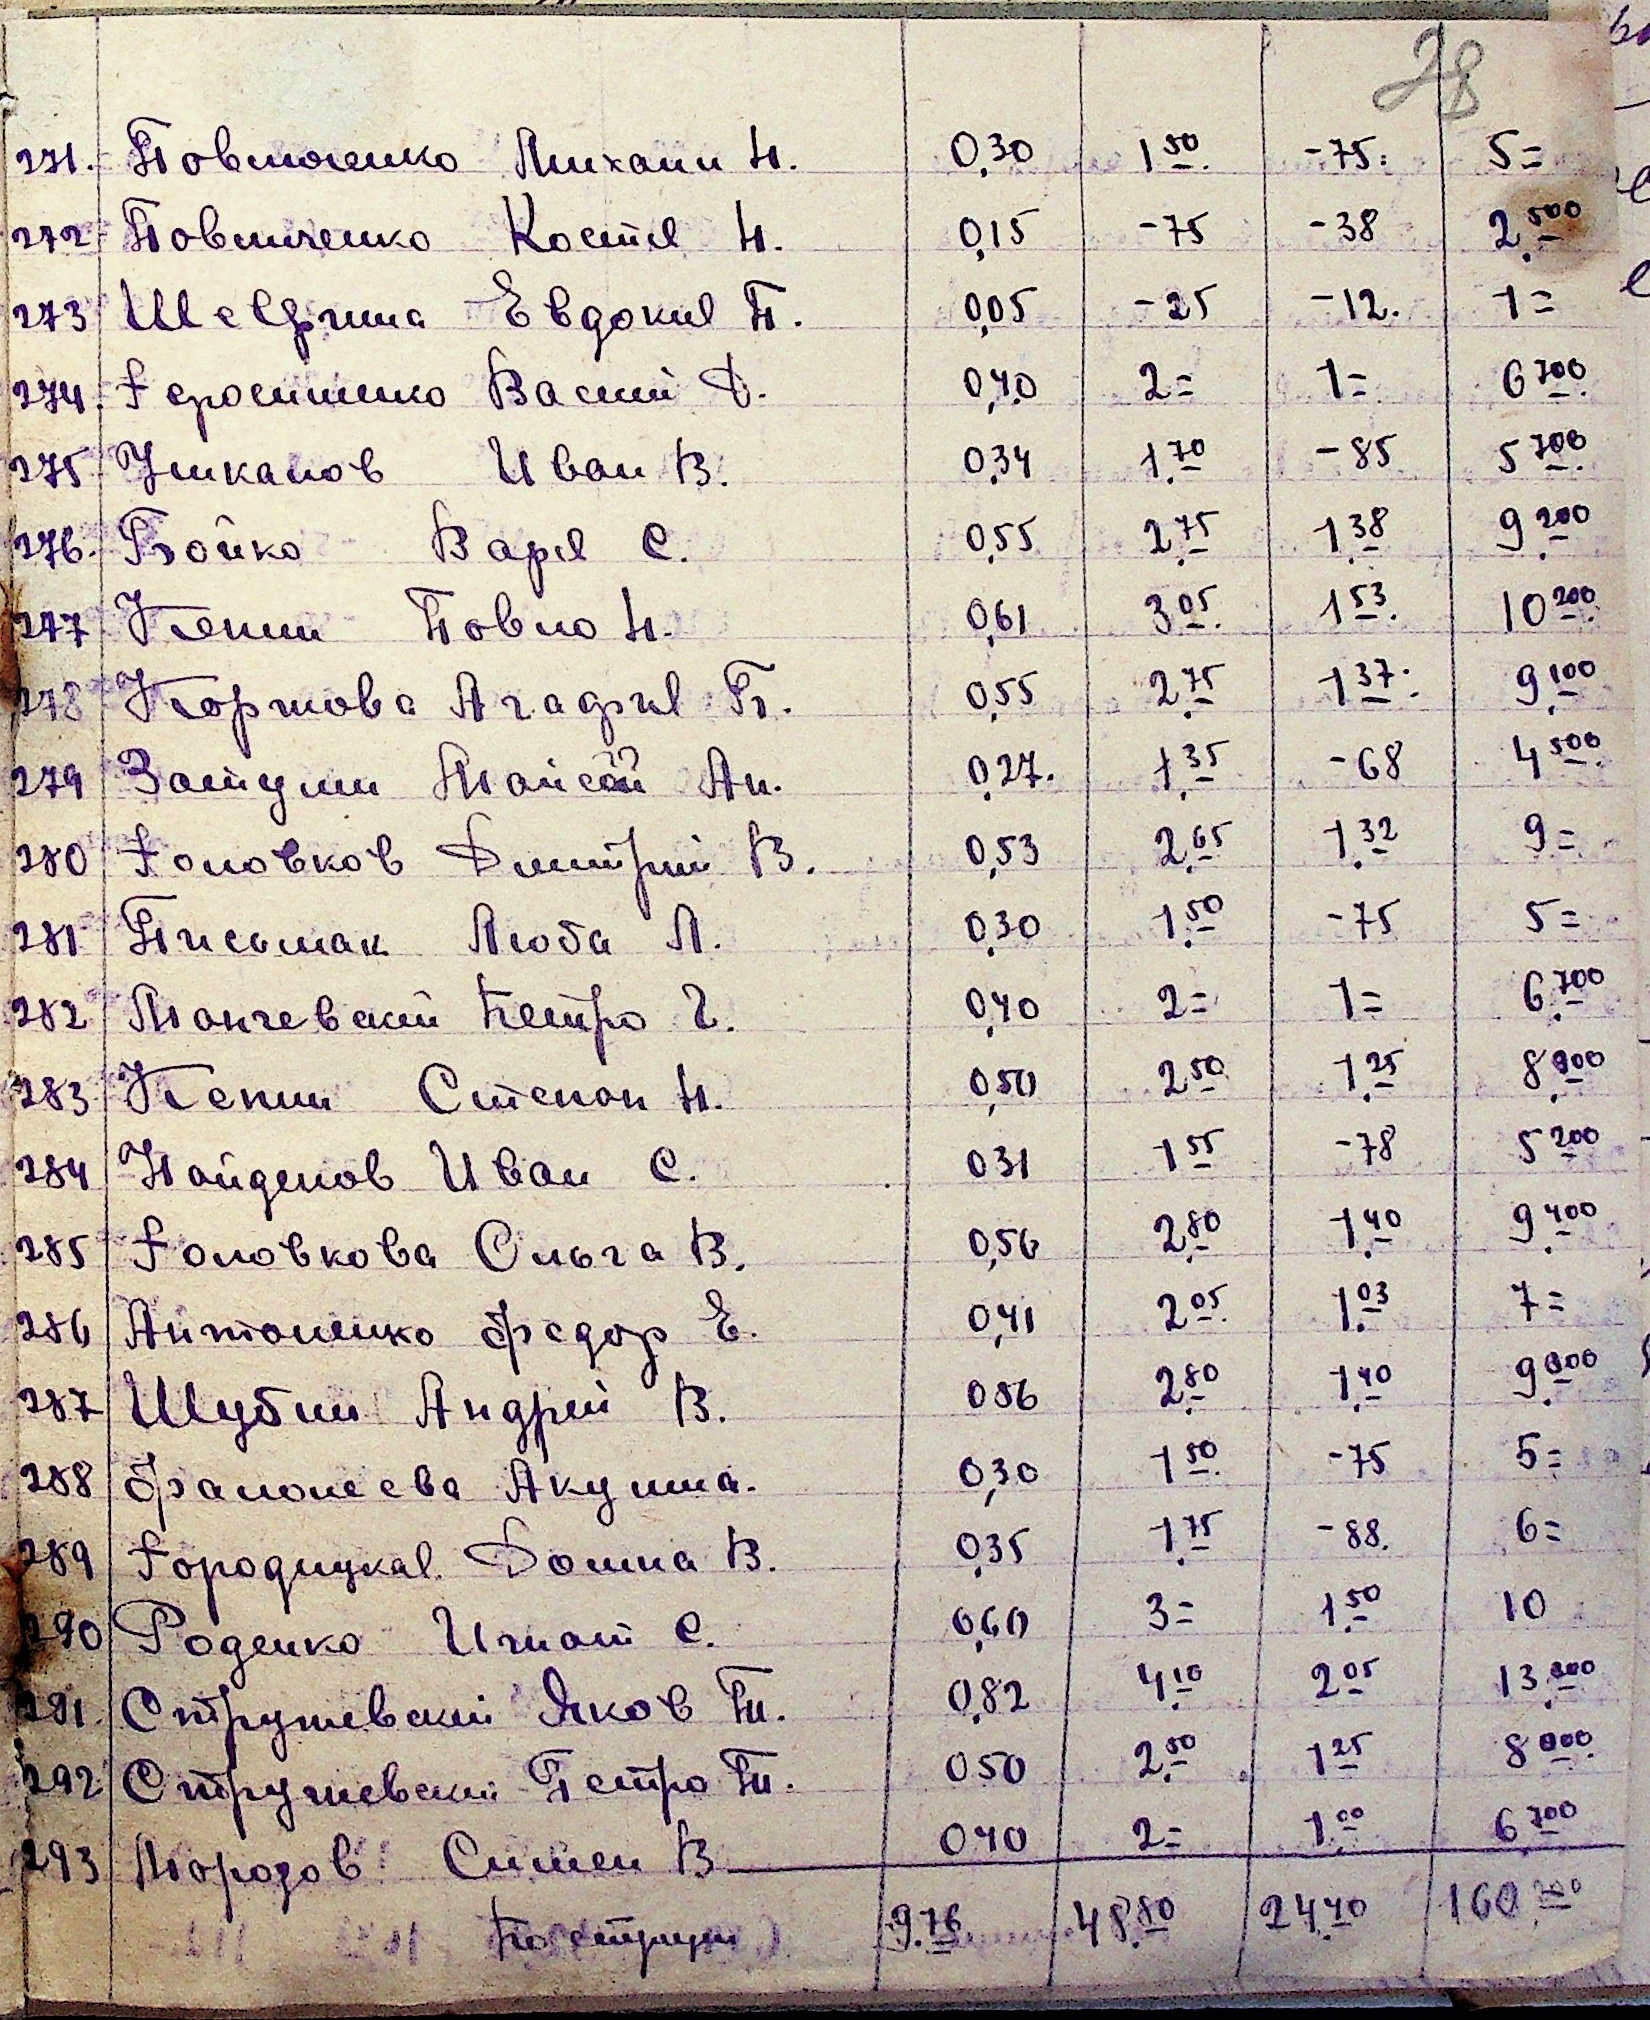 28
271. Повшоченко Михаил Н. 0,30 1.50 -75. 5=
272 Повшиченко Костя Н. 0,15 -75 -38 2.500
273 Шевфина Евдокия П. 0,05 -25 -12. 1=
274. Герасименко Васили Д. 0,40 2= 1= 6.700
275 Ушкалов Иван В. 0,34 1.70 -85 5.700
276. Бойко Варя С. 0,55 2.75 1.38 9.200
277 Кепин Повло Н. 0,61 3.05. 1.53. 10.200
278 Коржова Агафия Б. 0,55 2.75 1.37. 9.100
279 Затулин Ан. 0,27. 1.35 -68 4.500
280 Головков Дмитрий В. 0,53 2.65 1.32 9=
281 Письмак Люба Л. 0,30 1.50 -75 5=
282 Манчевский Петро Г. 0,40 2= 1= 6.700
283 Кепин Степан Н. 0,50 2.50 1.25 8.300
284 Найденов Иван С. 0 31 1.55 -78 5.200
285 Головкова Ольга В. 0,56 2.80 1.40 9.400
286 Антоненко Федор Е. 0,41 2.05. 1.03 7=
287 Шубин Андрей В. 0 56 2.80 1.40 9.300
288 Фалонеева Акулина. 0,30 1.50. -75 5=
289 Городицкая Домна В. 0,35 1.75 -88. 6=
290 Роденко Игнат С. 0,60 3= 1.50 10
291. Струшевский Яков Ти. 0,82 4.10 2.05 13.
292 Струшевский Петро Ти. 0 50 2.50 1.25 8.300
293 Морозов Симен В 0 40 2= 1.00 6.700
По 9.76 48.80 24.40 160.